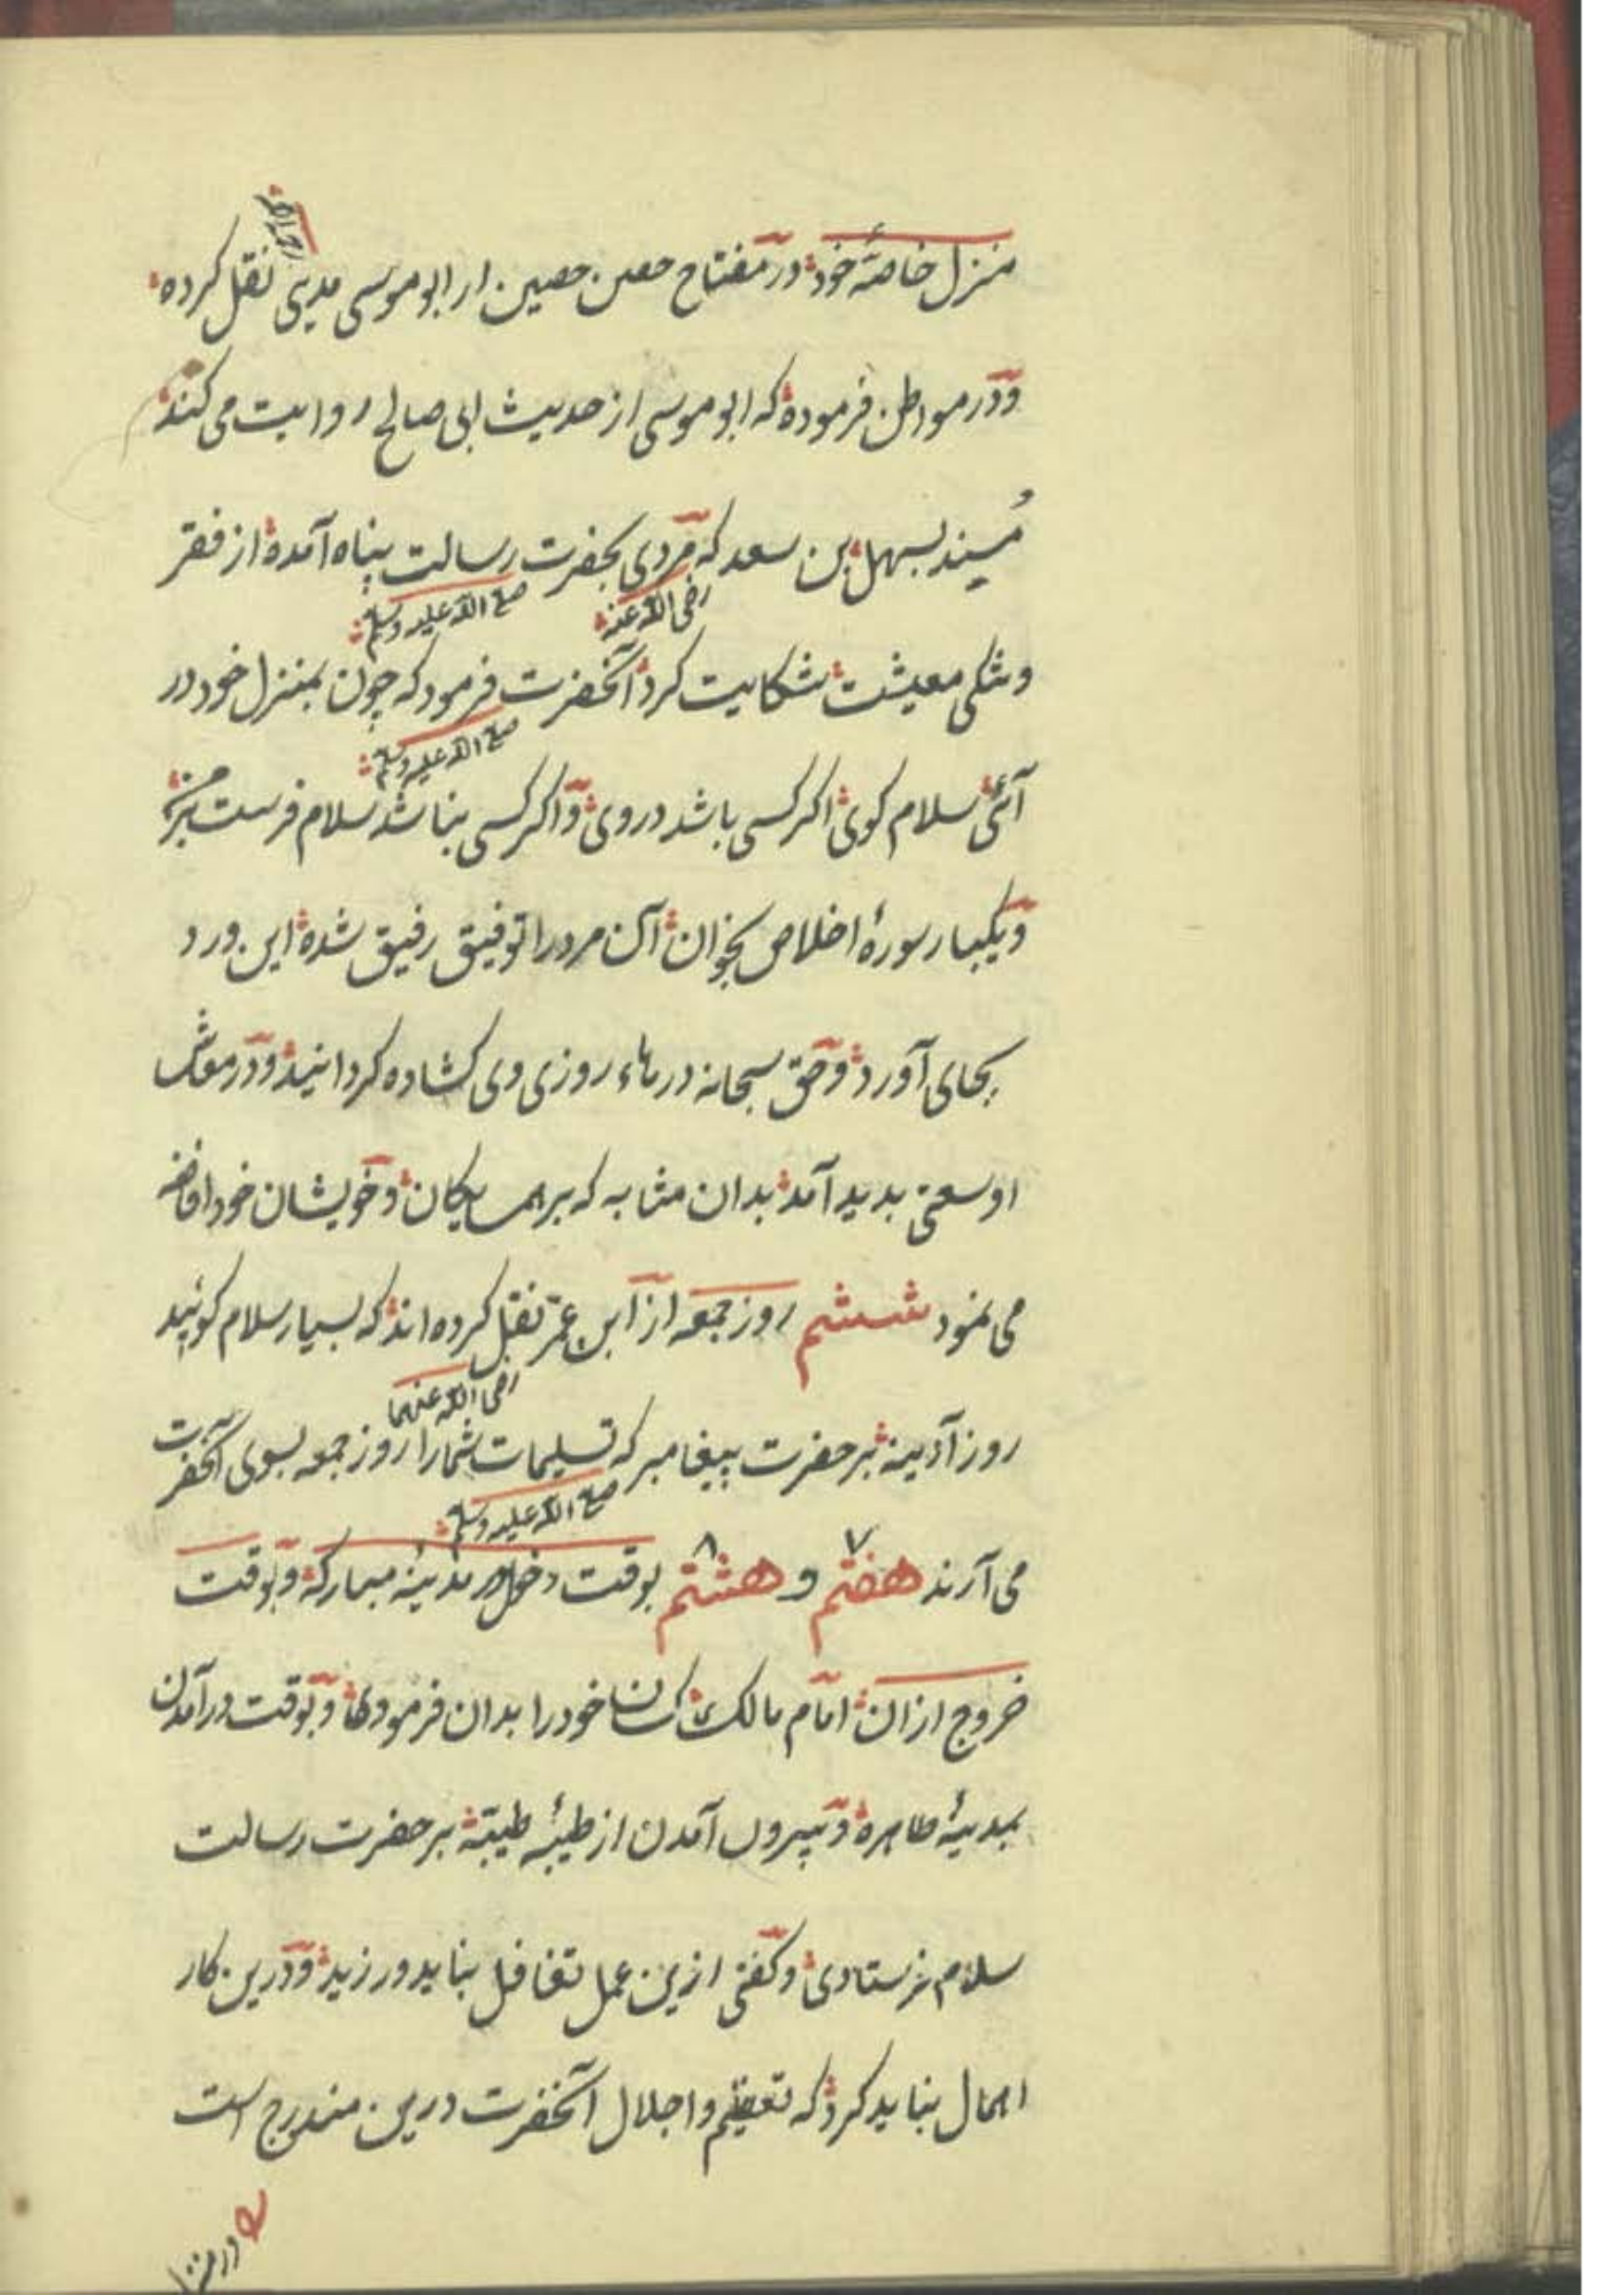 منزل خاصهٔ خود در مفتاح حصن حصین از ابو موسی مدینی نقل کرده
و در مواطن فرموده که ابو موسی از حدیث ابی صالح روایت می کند
مسند بسهل بن سعد که مردی بحضرت رسالت پناه آمده از فقر
رضی الله عنه صلی الله علیه وسلم
و تنکی معیشت شکایت کرد آنحضرت فرمود که چون بمنزل خود در
صلی الله علیه وسلم
آئی سلام کوی اکر کسی باشد در وی و اکر کسی نباشد سلام فرست بر من
و یکبار سورهٔ اخلاص بخوان آن مرد را توفیق رفیق شده این ورد
بجای آورد و حق سبحانه درهاء روزی وی کشاده کردانید و در معاش
او سعتی پدید آمد بدان مثابه که بر همسایکان و خویشان خود افاضه
می نمود ششم روز جمعه از ابن عمر نقل کرده اند که بسیار سلام کوئید
رضی الله عنهما
روز آدینه بر حضرت پیغامبر که تسلیمات شما را روز جمعه بسوی آنحضرت
صلی الله علیه وسلم
می آرند هفتم ۷ و هشتم ۸ بوقت دخول در مدینهٔ مبارکه و بوقت
خروج ازان امام مالک کسان خود را بدان فرمودی و بوقت درآمدن
بمدینهٔ طاهره و بیرون آمدن از طیبهٔ طیبه بر حضرت رسالت
سلام فرستادی و کفتی ازین عمل تغافل نباید ورزید و درین کار
اهمال نباید کرد که تعظیم و اجلال آنحضرت درین مندرج است